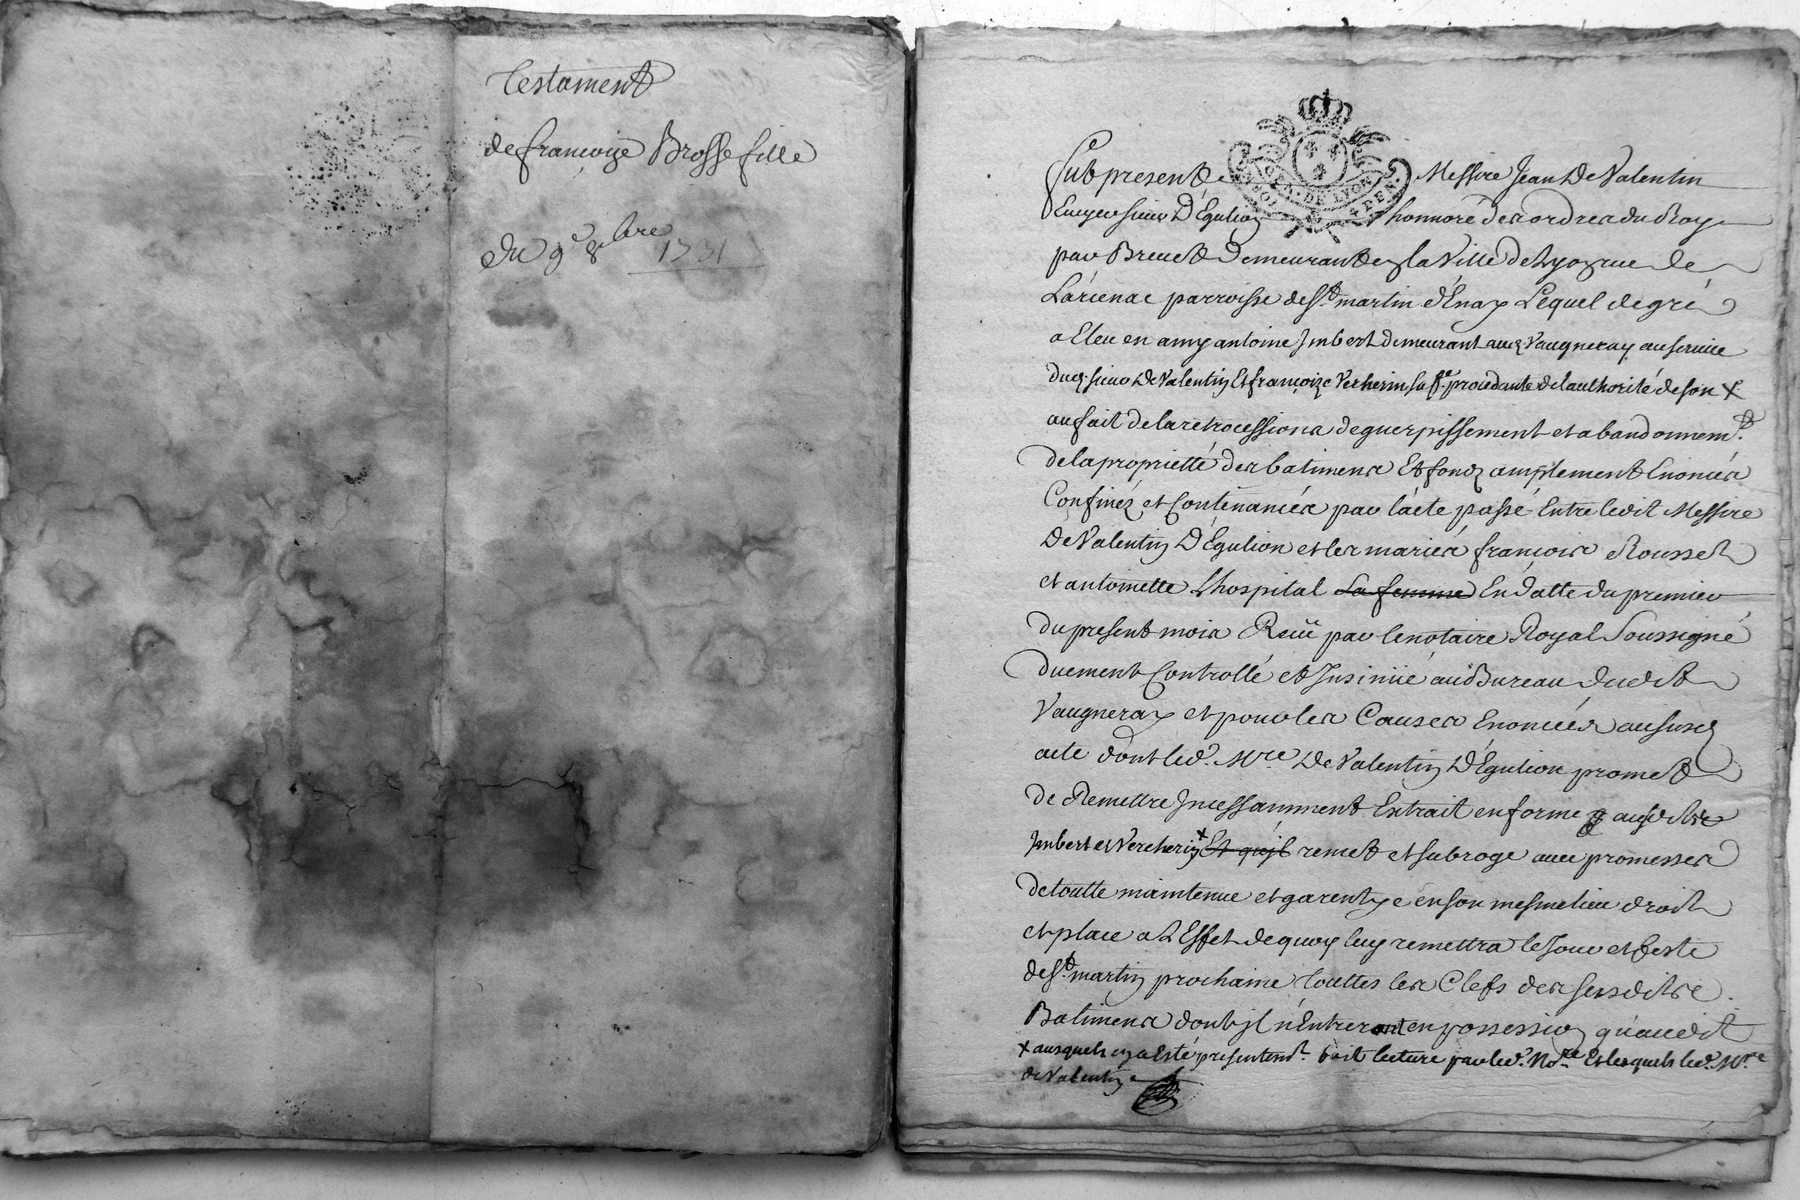 Testament
de françoize Brosse fille
Du 9e 8bre 1731
fut present Messire Jean De Valentin
Escuyer sieur D'Egulion honnoré des ordres du Roy
par Brevet Demeurant en la Ville de Lyon rue de
L'arcenac parroisse de St. martin d'Enay Lequel de gré
a Eleu en amy antoine Imbert demeurant audt Vaugneray au service
dud. sieur De Valentin Et françoize Vercherin sa fe. procedante de l'authorité de son x.
au fait de la retrocession deguerpissement et abandonnemt.
de la proprietté des batimens Et fondz amplement Enoncés
Confinéz et Contenancés par l'acte passé Entre ledit Messire
De Valentin D'Egulion et les mariés françois Rousset
et antoinette Lhospital La femme En datte du premier
du present mois Receü par le notaire Royal Soussigné
duement Controllé et Insinüé au Bureau dudit
Vaugneray et pour les Causes Enoncées au susd
acte dont led. Mre De Valentin D'Egulion promet
de Remettre Incessamment Extrait en forme ausdits
Imbert et Vercherin x Et quil remet et subroge avec promesses
de toutte maintenue et garentye en son mesme lieu droit
et place a L'Effet de quoy luy remettra le Jour et feste
de St. martin prochaine touttes les Clefs des susdits.
Batimens dont Il n'Entreront en possession qu'audit
x ausquels en a Esté presentemt. fait lecture par led. Nore. Et lesquels led. Mre
de Valentin